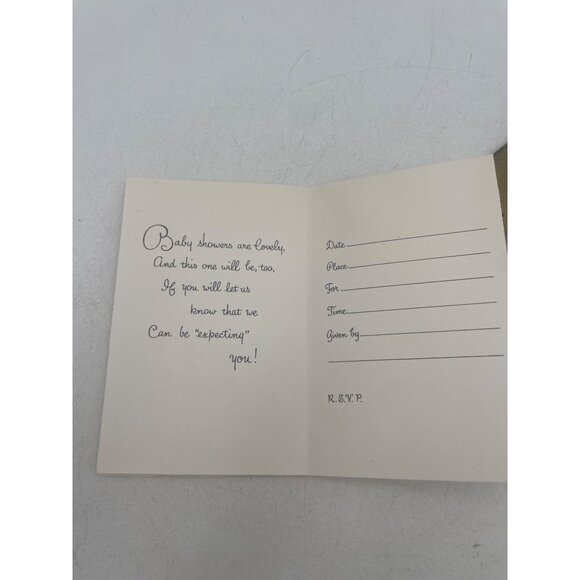 Baby showers are lovely,
And this one will be, too,
If you will let us
know that we
Can be "expecting"
you!
Date
Place
For
Time
Given by
R.S.V.P.